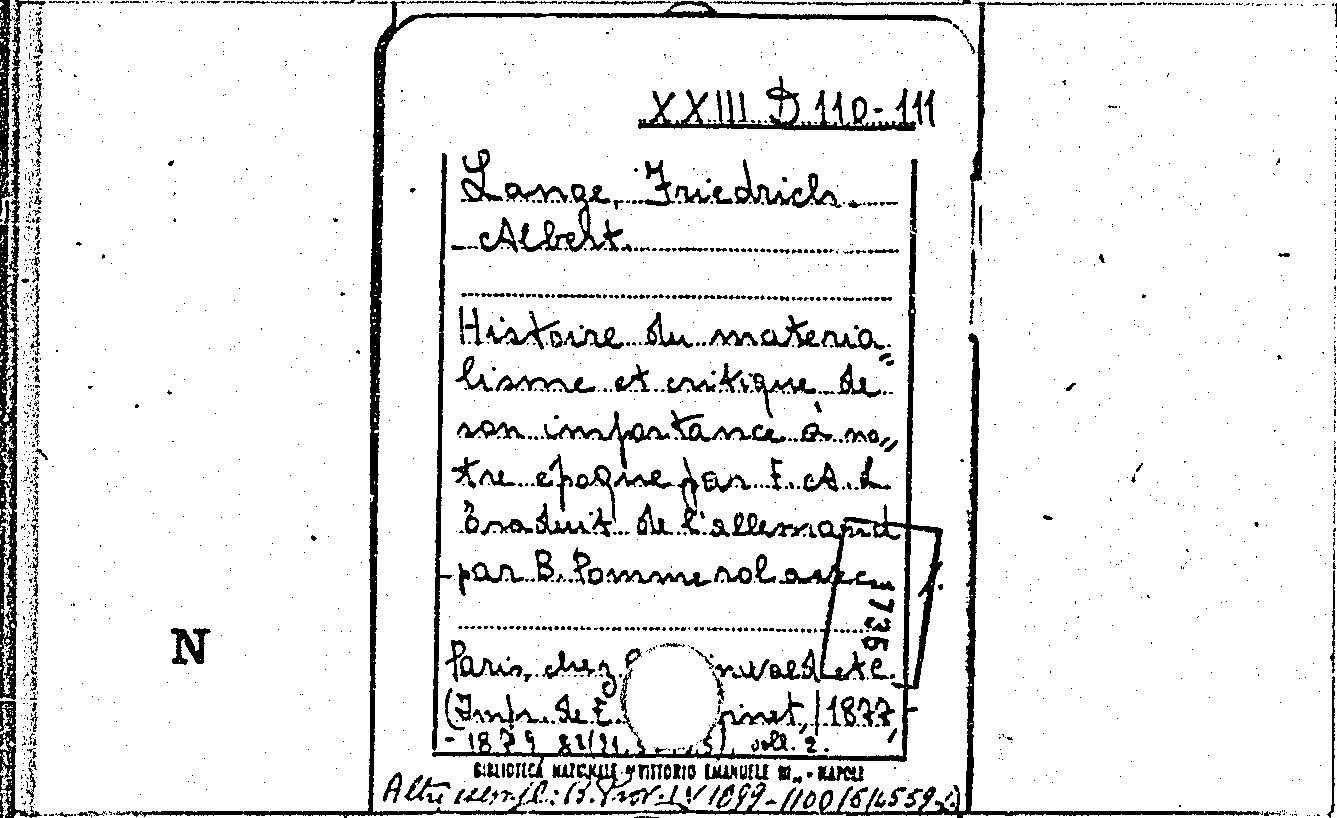 XXIII D 110-111
Lange, Friedrich
Albert.
Histoire du materia„
lisme et critique de
son importance à no„
tre epoque par F. A. L.
Traduit de l'allemand
par B. Pommerol avec
1736
N
Paris, chez nwald etc.
(Imp. de E. pinet, 1877,
- 1879 voll. 2.
BIBLIOTECA NAZIONALE "VITTORIO EMANUELE III„ - NAPOLI
Altri esempl: B. Prov. 1099-1100